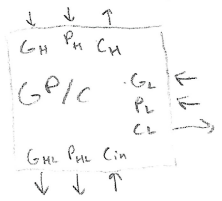 GH PH CH
GP/C
GL
PL
CL
GHL PHL Cin